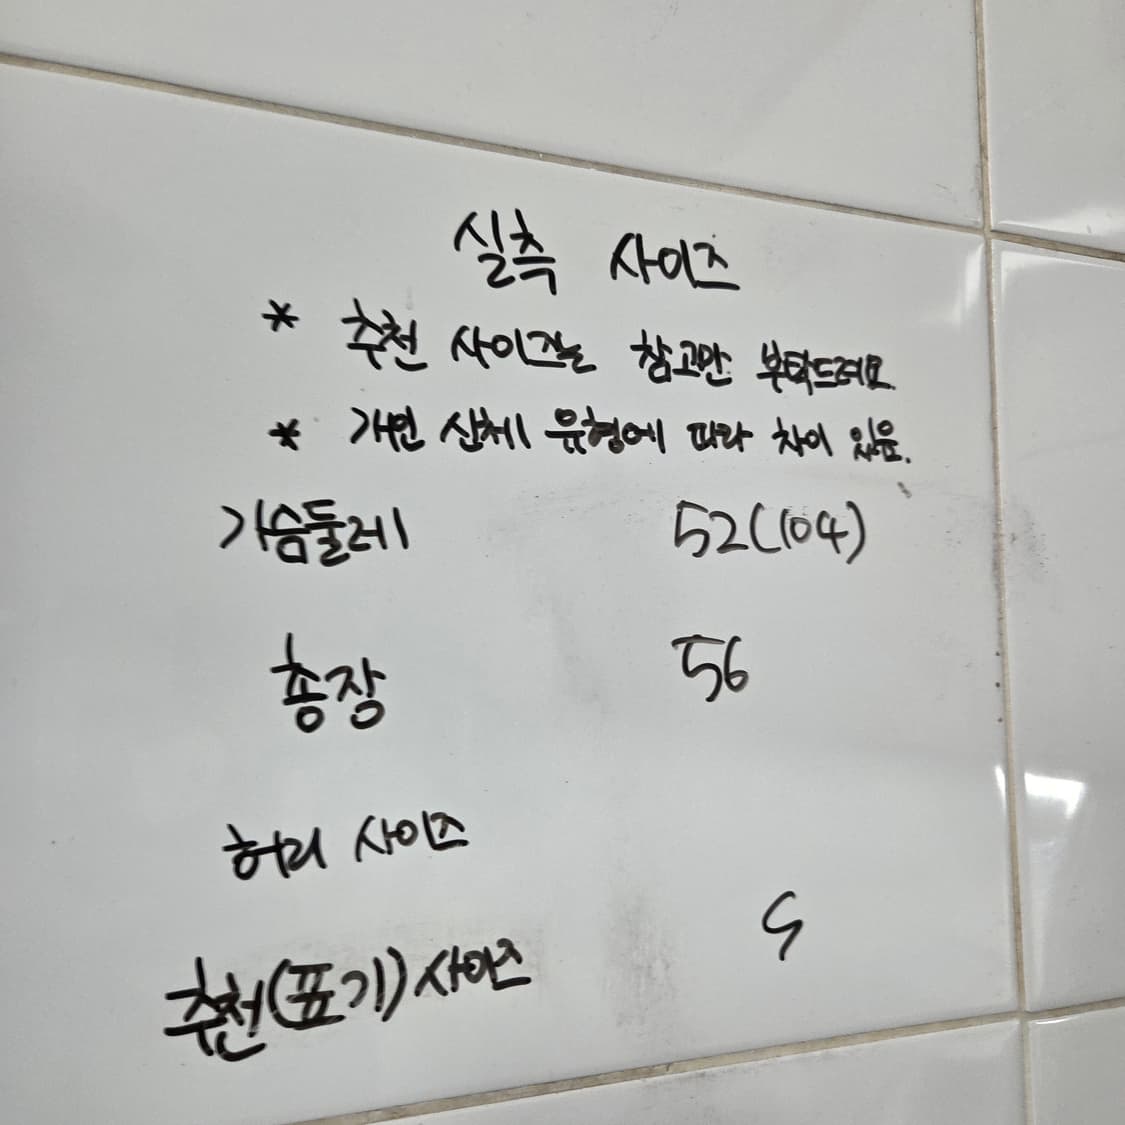 실측 사이즈
* 추천 사이즈는 참고만 부탁드려요
* 개인 신체 유형에 따라 차이 있음.
가슴둘레 52(104)
총장 56
허리 사이즈
추천(표기)사이즈 S